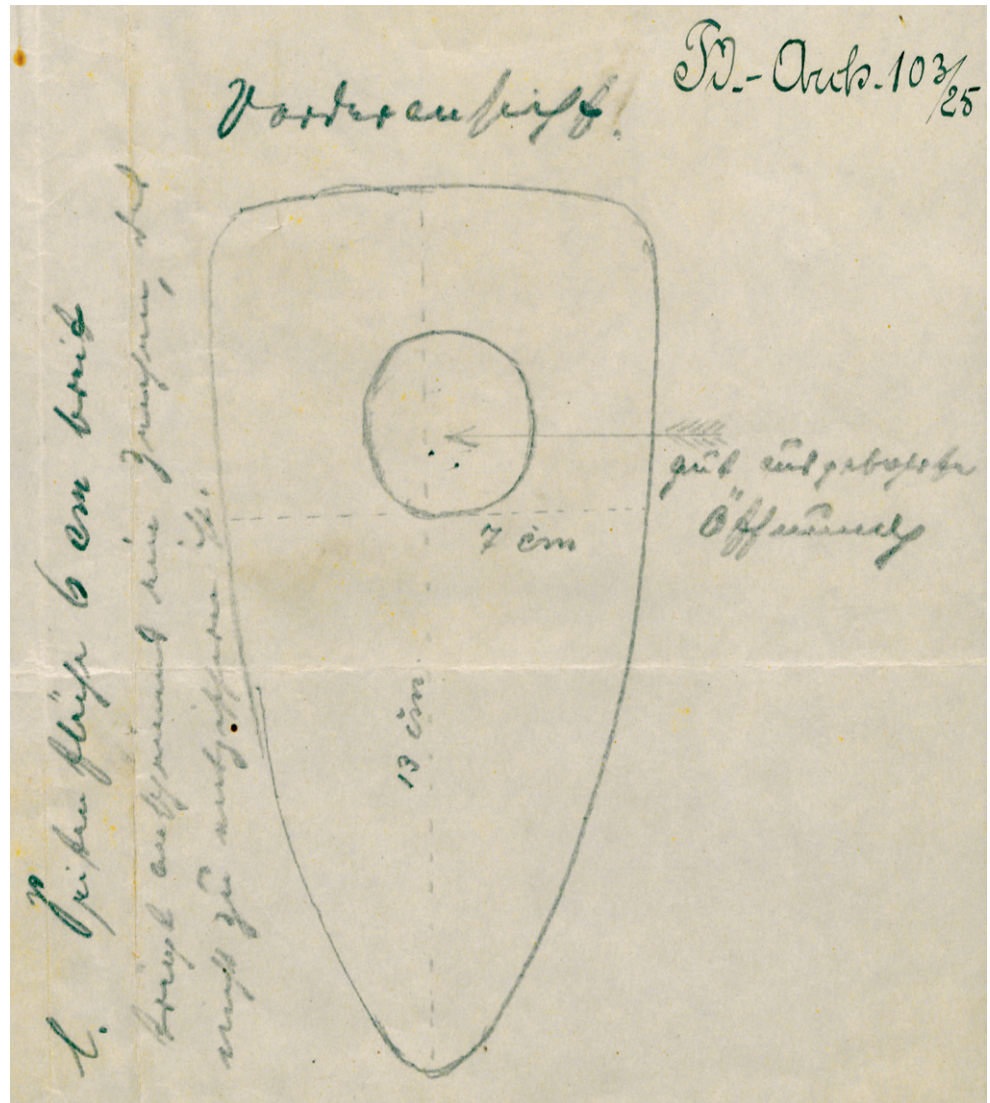 Arch. 103/25
Vorderansicht!
gut ausgebohrte
Öffnung
7 cm
13 cm
l. Seitenfläche 6 cm breit
trägt anscheinend ein Zeichen, das
nicht zu entziffern ist.